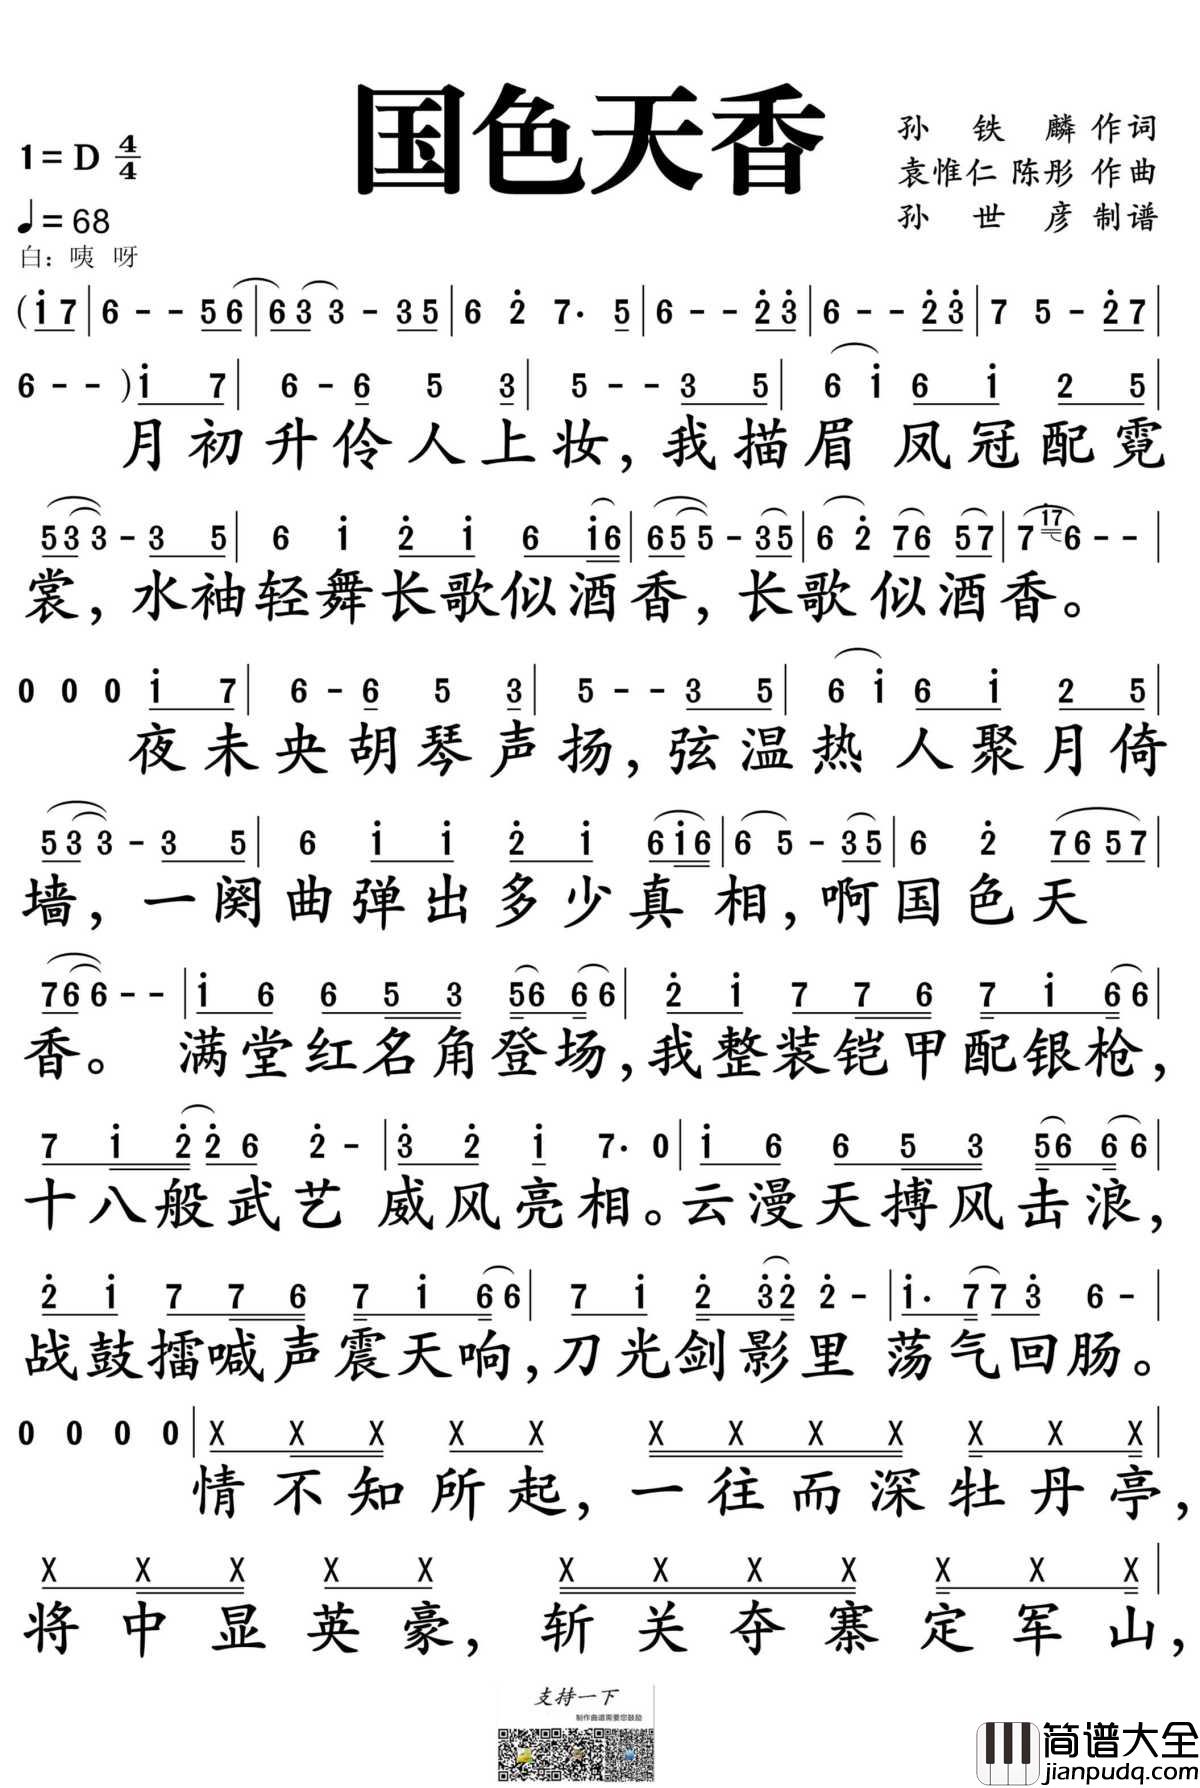 国色天香
孙铁麟作词
1=D 4/4
袁惟仁 陈彤 作曲
♩=68
孙世彦制谱
白:咦 呀
(i7|6--56|633-35|6 2 7. 5|6--23|6--23|7 5-27|
6--)i 7|6-6 5 3|5--3 5|6 i 6 i 2 5|
月初升伶人上妆,我描眉 凤冠配霓
533-3 5|6 i 2 i 6 i6|655-35|6 2 76 57|7 i7 6--|
裳,水袖轻舞长歌似酒香,长歌似酒香。
0 0 0 i 7|6-6 5 3|5--3 5|6 i 6 i 2 5|
夜未央胡琴声扬,弦温热 人聚月倚
533-3 5|6 i i 2 i 6i6|6 5-35|6 2 76 57|
墙,一阕曲弹出多少真相,啊国色天
766--|i 6 6 5 3 56 66|2 i 7 7 6 7 i 66|
香。 满堂红名角登场,我整装铠甲配银枪,
7 i 22 6 2-|3 2 i 7. 0|i 6 6 5 3 56 66|
十八般武艺 威风亮相。云漫天搏风击浪,
2 i 7 7 6 7 i 66|7 i 2 32 2-|i. 77 3 6-|
战鼓擂喊声震天响,刀光剑影里 荡气回肠。
0 0 0 0|X X X X X X X X X X X X|
情不知所起,一往而深牡丹亭,
X X X X X X X X X X X X|
将中显英豪,斩关夺寨定军山,
支持一下
制作曲谱需要您鼓励
简谱大全
jianpudq.com